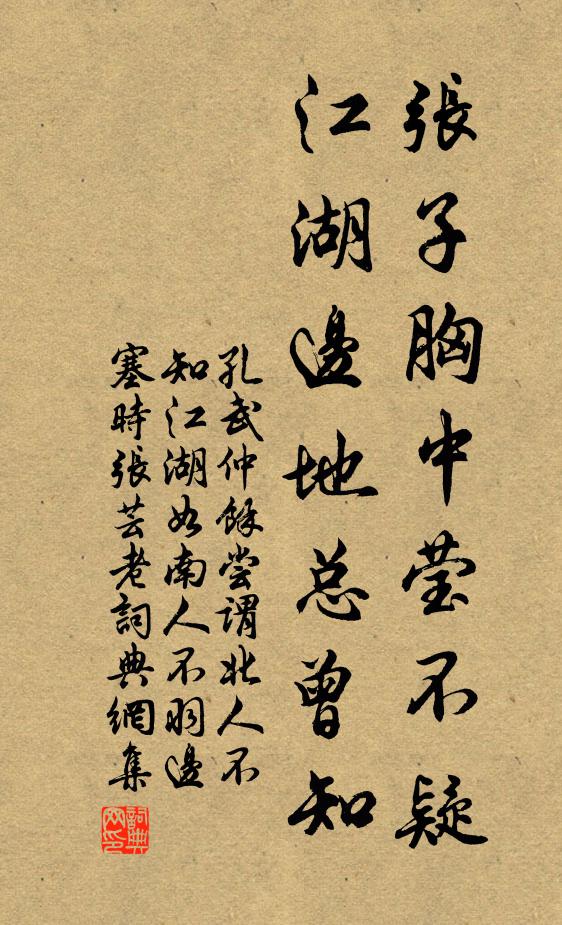 張子胸中莹不疑
江湖邊地总曾知
孔武仲餘尝謂北人不
知江湖如南人不羽邊
塞時張芸老詞典網集
詞典网印